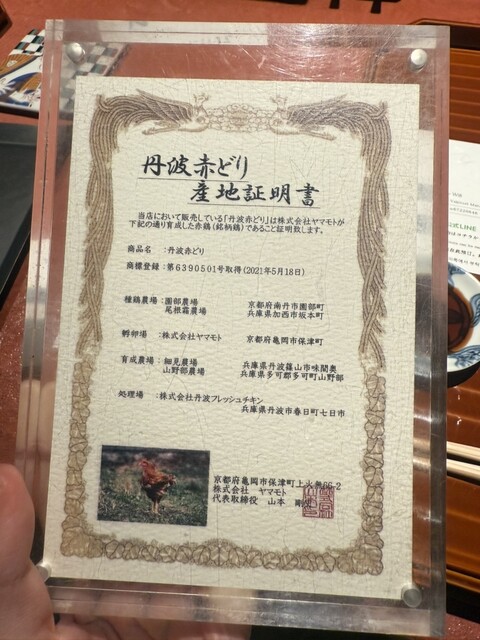 丹波赤どり
産地証明書
当店において販売している「丹波赤どり」は株式会社ヤマモトが
下記の通り育成した赤鶏(銘柄鶏)であること証明致します。
商品名 :丹波赤どり
商標登録 :第6390501号取得(2021年5月18日)
種鶏農場 :園部農場 京都府南丹市園部町
尾根霜農場 兵庫県加西市坂本町
孵卵場 :株式会社ヤマモト 京都府亀岡市保津町
育成農場 :細見農場 兵庫県丹波篠山市味間奥
山野部農場 兵庫県多可郡多可町山野部
処理場 :株式会社丹波フレッシュチキン
兵庫県丹波市春日町七日市
京都府亀岡市保津町上火無66-2
株式会社 ヤマモト
代表取締役 山本 剛
公式LINE